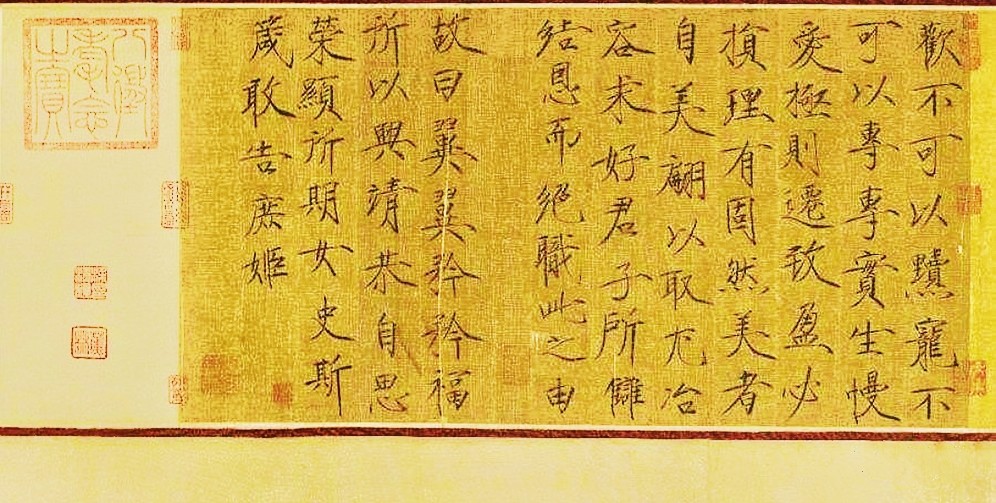 歡不可以黷寵不
可以專專實生慢
愛極則遷致盈必
損理有固然美者
自美翩以取尤冶
容求好君子所讎
結恩而絕職此之由
故曰翼翼矜矜福
所以興靖恭自思
榮顯所期女史斯
箴敢告庶姬
八徵耄念之寶